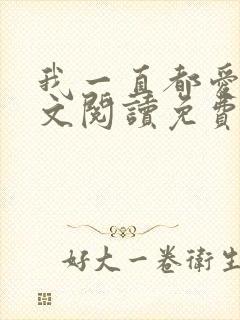 我一直都愛
文閱讀免費
好大一卷衛生